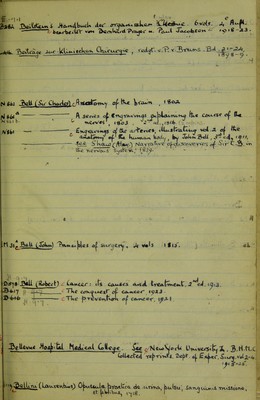 Beilstein's Handbuch der organischen Chemie. 6 vols. 4e Aufl.
bearbeitet von Bernhard Prager u. Paul Jacobson 1918-23.
Beiträge zur klinischen Chirurgie, redgt. v. P. v. Bruns. Bd. 21-24,
1898-9.
N 861 Bell (Sir Charles): Anatomy of the brain, 1802
A series of engravings explaining the course of the
nerves, 1803. 2nd ed., 1816.
N 861 Engravings of the arteries, illustrating vol 2 of the
anatomy of the human body, by John Bell, 3rd ed., 1811.
see Shaw (Alex) Narrative of discoveries of Sir C.B. in
the nervous system, 1839.
M 31a Bell (John) Principles of surgery. 4 vols 1815.
D 698 Bell (Robert): Cancer: its causes and treatment. 2nd ed. 1913.
D 617 The conquest of cancer 1923.
D 606 The prevention of cancer. 1921.
Bellevue Hospital Medical College. See New York University & B.H.M.C.
Collected reprints Dept. of Exper. Surg. vol 2-6
1918-25.
Bellini (Laurentius) Opuscula practica de urina, pulsu, sanguinis missione,
et febribus, 1718.